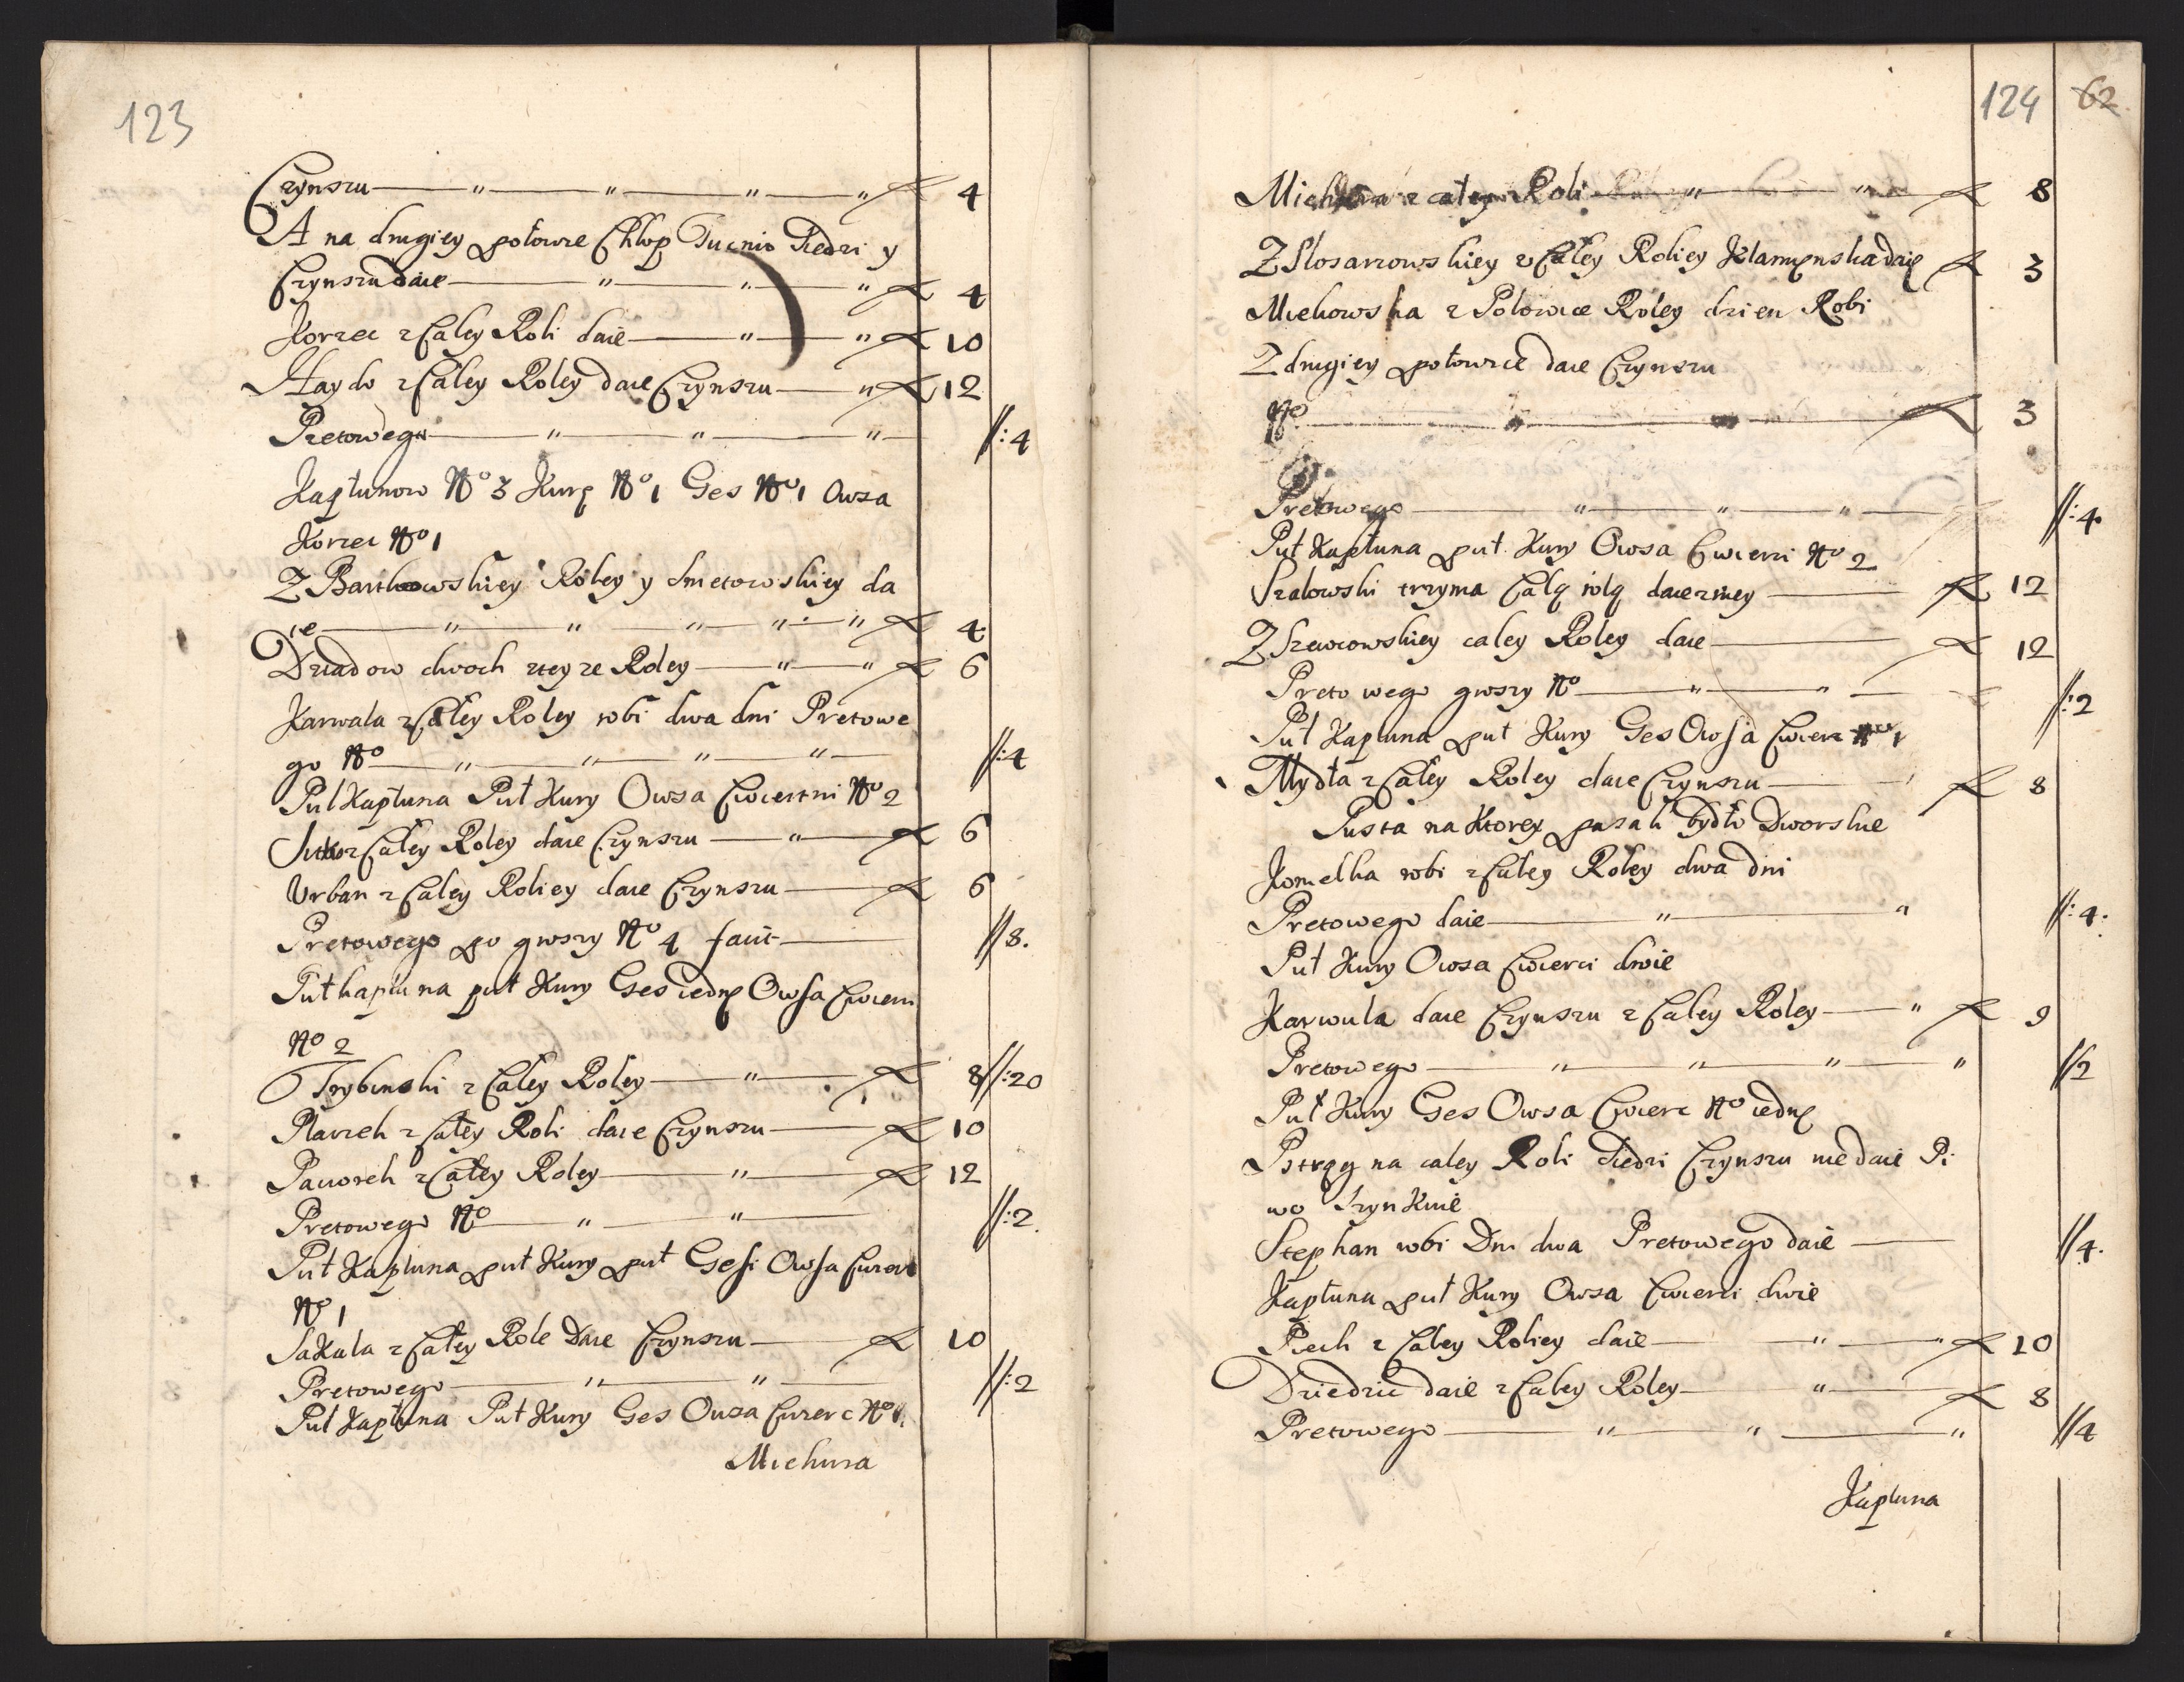 123
Czynszu — " — " — " — " f 4
A na drugiey połowie Chłop Tucnio Siedzi y
Czynszu daie — " — " — " f 4
Korzec z Całey Roli daie — " — " f 10
Haydo z Całey Roley daie Czynszu — " f 12
Pretowego — " — " — " — //:4
Kapłunow No 3 Kurę No 1 Ges No 1 Owsa
Korzec No 1
Z Bartkowskiey Roley y Smetowskiey da
ie — " — " — " — " — " f 4
Dziadow dwoch z tey ze Roley — " — " f 6
Karwala z Całey Roley robi dwa dni Pretowe
go No — " — " — " — " — //:4
Puł Kapłuna Puł Kury Owsa Cwiertni No 2
z Całey Roley daie Czynszu — " — f 6
Urban z Całey Roliey daie Czynszu — f 6
Pretowego po groszy No 4 facit — //8.
Puł kapłuna puł Kury Ges iednę Owsa Cwierci
No 2
Trybinski z Całey Roley — " — f 8 //:20
Plaszek z Całey Roli daie Czynszu — f 10
Paciorek z Całey Roley — " — f 12
Pretowego No — " — " — //:2.
Puł Kapłuna puł Kury puł Gesi Owsa Cwierc
No 1
Sakula z Całey Role Daie Czynszu — f 10
Pretowego — " — " — //:2
Puł Kapłuna Puł Kury Ges Owsa Cwierc No 1.
Michura
124 62.
Michura z całey Roli — " — " — f 8
Z Slosarzowskiey z Całey Roliey Klamęnska daię f 3
Miekowska z Połowice Roley dzien Robi
Z drugiey połowice daie Czynszu
No — " — " — f 3
Pretowego — " — " — " — //:4.
Puł Kapłuna puł Kury Owsa Cwierci No 2
Szalowski trzyma Całą rolą daie z niey — f 12
Z Szewcowskiey całey Roley daie — f 12
Pretowego groszy No — " — " — //:2
Puł Kapłuna puł Kury Ges Owsa Cwierc No 1
Mydła z Całey Roley daie Czynszu — f 8
Pusta na Ktorey pasali Bydło Dworskie
Komelka robi z Całey Roley dwa dni
Pretowego daie — " — " //:4.
Puł Kury Owsa Cwierci dwie
Karwula daie Czynszu z Całey Roley — " f 9
Pretowego — " — " — " — " //2
Puł Kury Ges Owsa Cwierc No iednę
Pstrąg na całey Roli Siedzi Czynszu nie daie Pi
wo Szynkuie
Stephan robi Dni dwa Pretowego daie — //4.
Kapłuna puł Kury Owsa Cwierci dwie
Piech z Całey Roliey daie — " — " f 10
Dziedzic daie z Całey Roley — " — f 8
Pretowego — " — " — " //4
Kapłuna